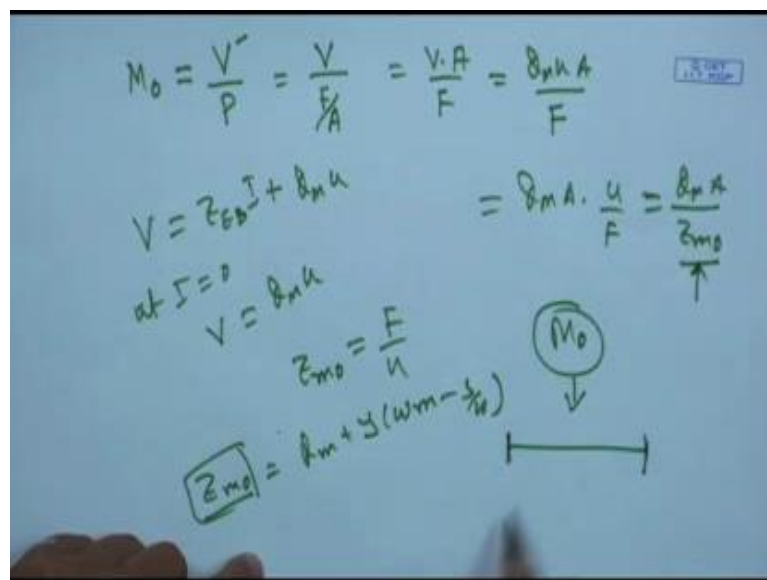 M₀ = V/P = V/(F/A) = V.A/F = φₘuA/F
V = Z_EB I + φₘu
= φₘA . u/F = φₘA/Zₘ₀
at I=0
V = φₘu
Zₘ₀ = F/u
M₀
Zₘ₀ = Rₘ + j(ωm - s/ω)